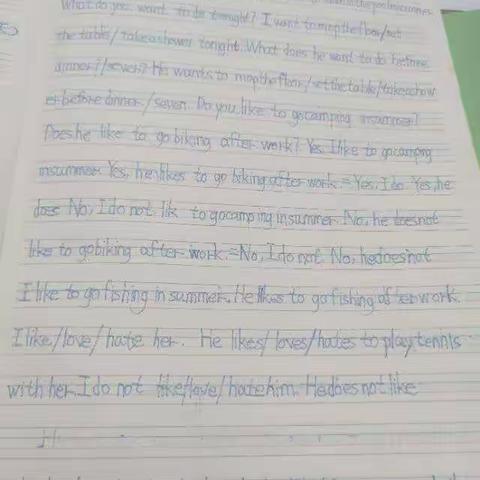 What do you want to do tonight? I want to mop the floor/set
the table/take a shower tonight. What does he want to do before
dinner?/seven? He wants to mop the floor/set the table/take a show
er before dinner/seven. Do you like to go camping in summer?
Does he like to go biking after work? Yes, I like to go camping
in summer. Yes, he likes to go biking after work.=Yes, I do. Yes, he
does No, I do not lik to go camping in summer. No, he does not
like to go biking after work.=No, I do not. No, he does not
I like to go fishing in summer. He likes to go fishing after work.
I like/love/hate her. He likes/loves/hates to play tennis
with her. I do not like/love/hate him. He does not like